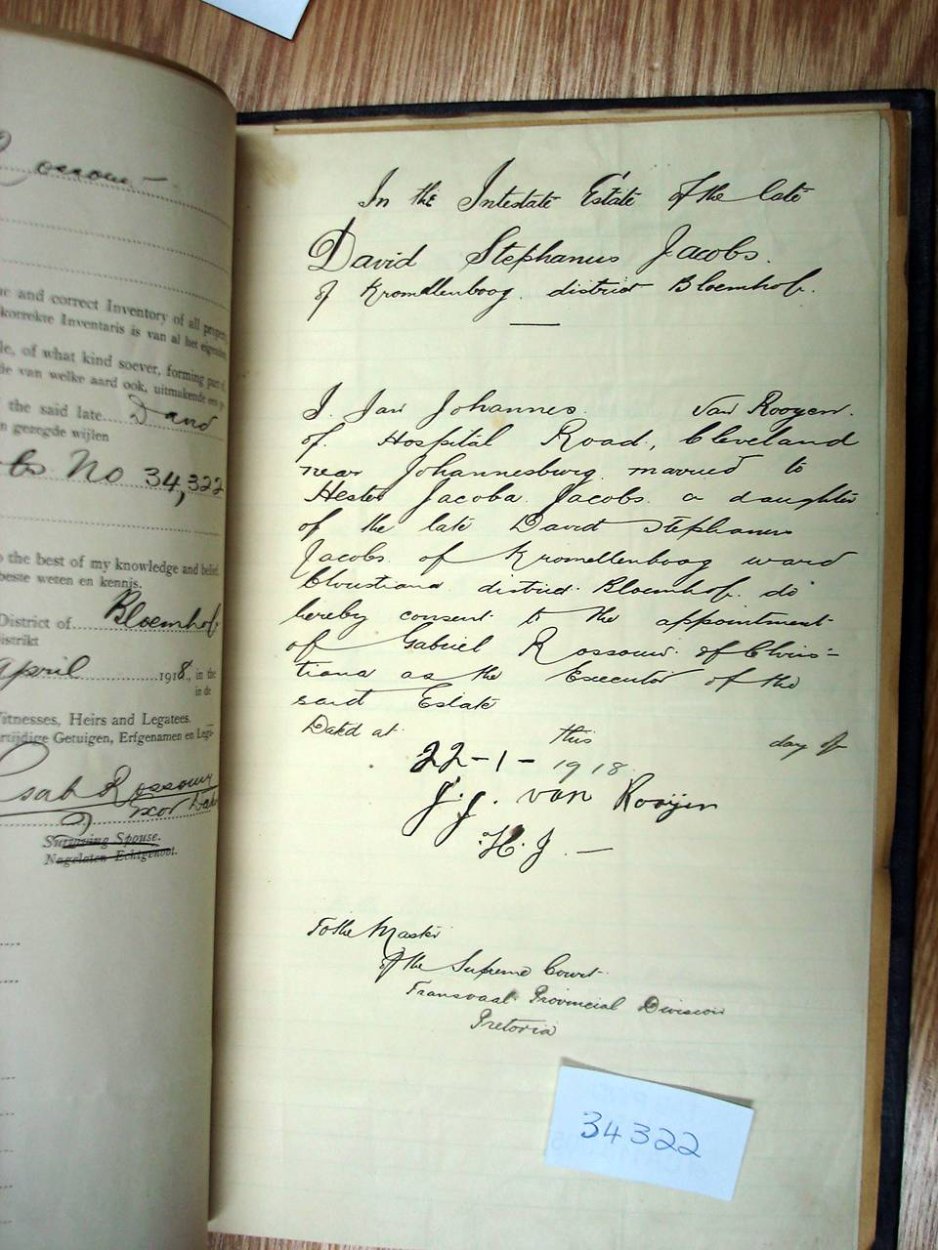 Rossouw –
ue and correct Inventory of all proper
korrekte Inventaris is van al het eigendom
le, of what kind soever, forming part of
die van welke aard ook, uitmakende een
f the said late....David
n gezegde wijlen
bs No 34,322
o the best of my knowledge and belief.
beste weten en kennis.
District of....Bloemhof
istrikt
April ........1918, in the
in de
Witnesses, Heirs and Legatees.
Getuigen, Erfgenamen en Lega-
Rossouw
Surviving Spouse.
Nagelaten Echtgenoot.
In the Intestate Estate of the late
David Stephanus Jacobs.
of Kromellenboog district Bloemhof.
I. Jan Johannes. Van Rooyen.
of. Hospital Road, Cleveland
near Johannesburg married to
Hester Jacoba Jacobs. a daughter
of the late David Stephanus
Jacobs of Kromellenboog ward
Christiana district. Bloemhof. do
hereby consent to the appointment
of Gabriel Rossouw. of Chris=
tiana as the Executor of the
said Estate
Datd at this day of
22-1- 1918.
J. J. van Rooijen
H. J. —
To the Master
of the Supreme Court.
Transvaal Provincial Division
Pretoria
34322